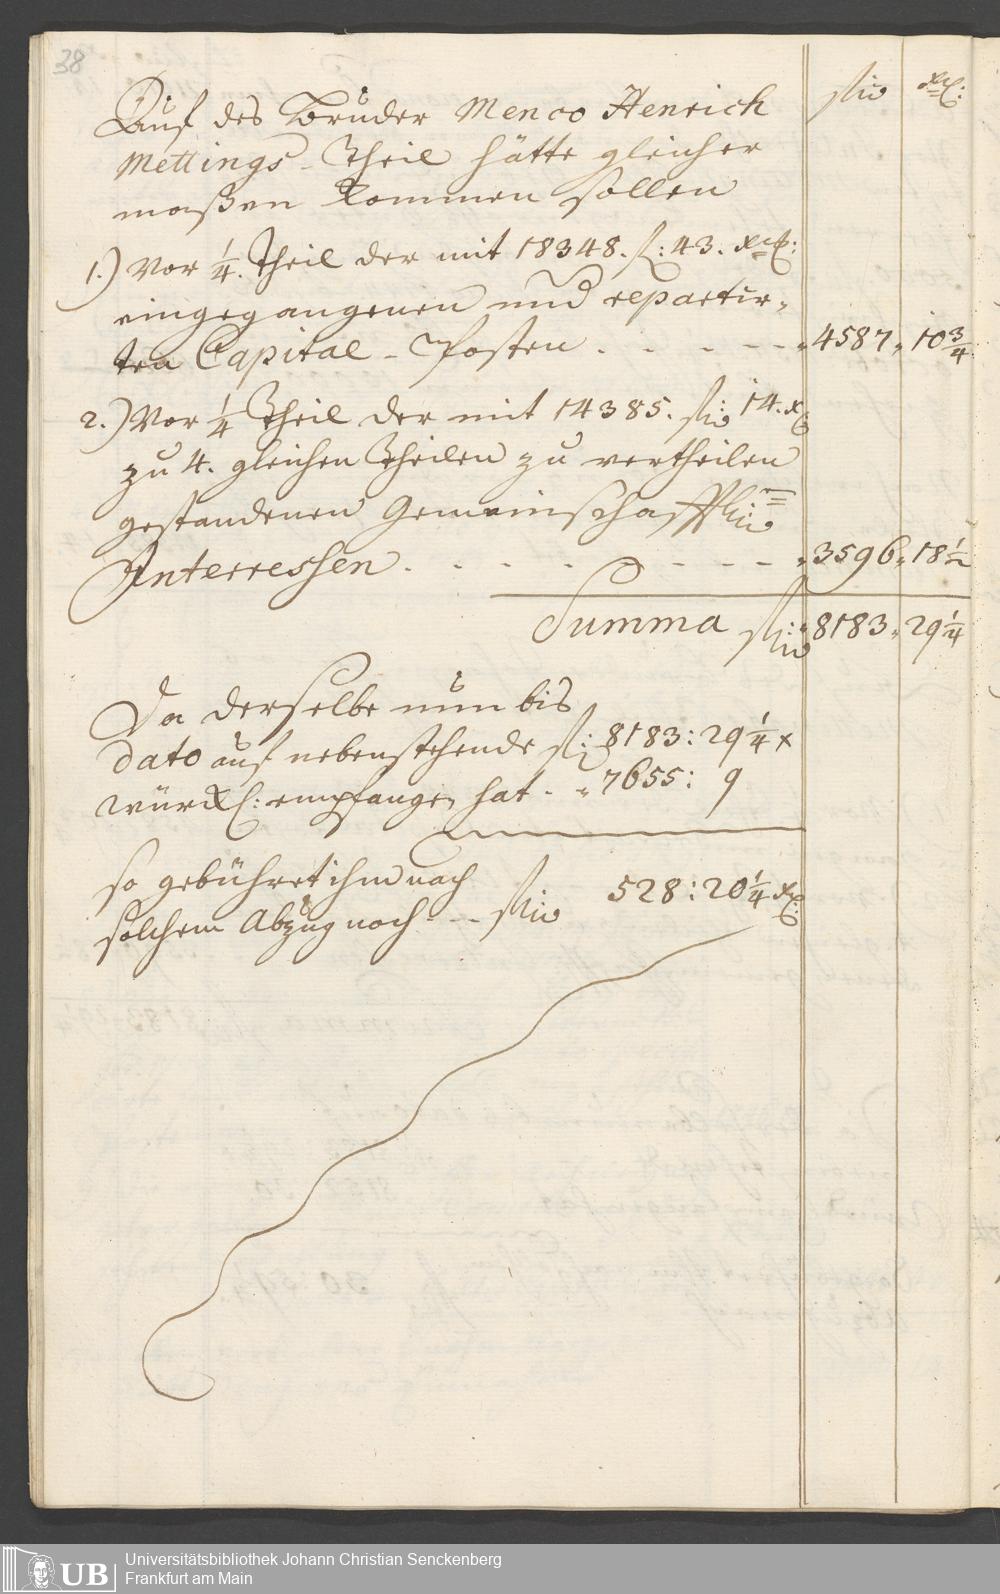 38
fl. xr:
Auf des Bruder Menco Henrich
Mettings Theil hätte gleicher
maßen kommen sollen
1.) Vor 1/4. Theil der mit 18348. fl: 43. xr:
eingegangenen und repartir„
ten Capital-Posten . - . - - „4587„ 10 3/4
2.) Vor 1/4 Theil der mit 14385. fl: 14. x
zu 4. gleichen Theilen zu vertheilen
gestandenen Gemeinschafftl:
Interressen . - . - . - - - „3596„ 18 1/2
Summa fl: „8183„ 29 1/4
Da derselbe nun bis
dato auf nebenstehende fl: 8183: 29 1/4 x
würkl: empfangen hat - „7655: 9
so gebühret ihm nach
solchem Abzug noch - - fl. 528: 20 1/4 x:
UB Universitätsbibliothek Johann Christian Senckenberg
Frankfurt am Main